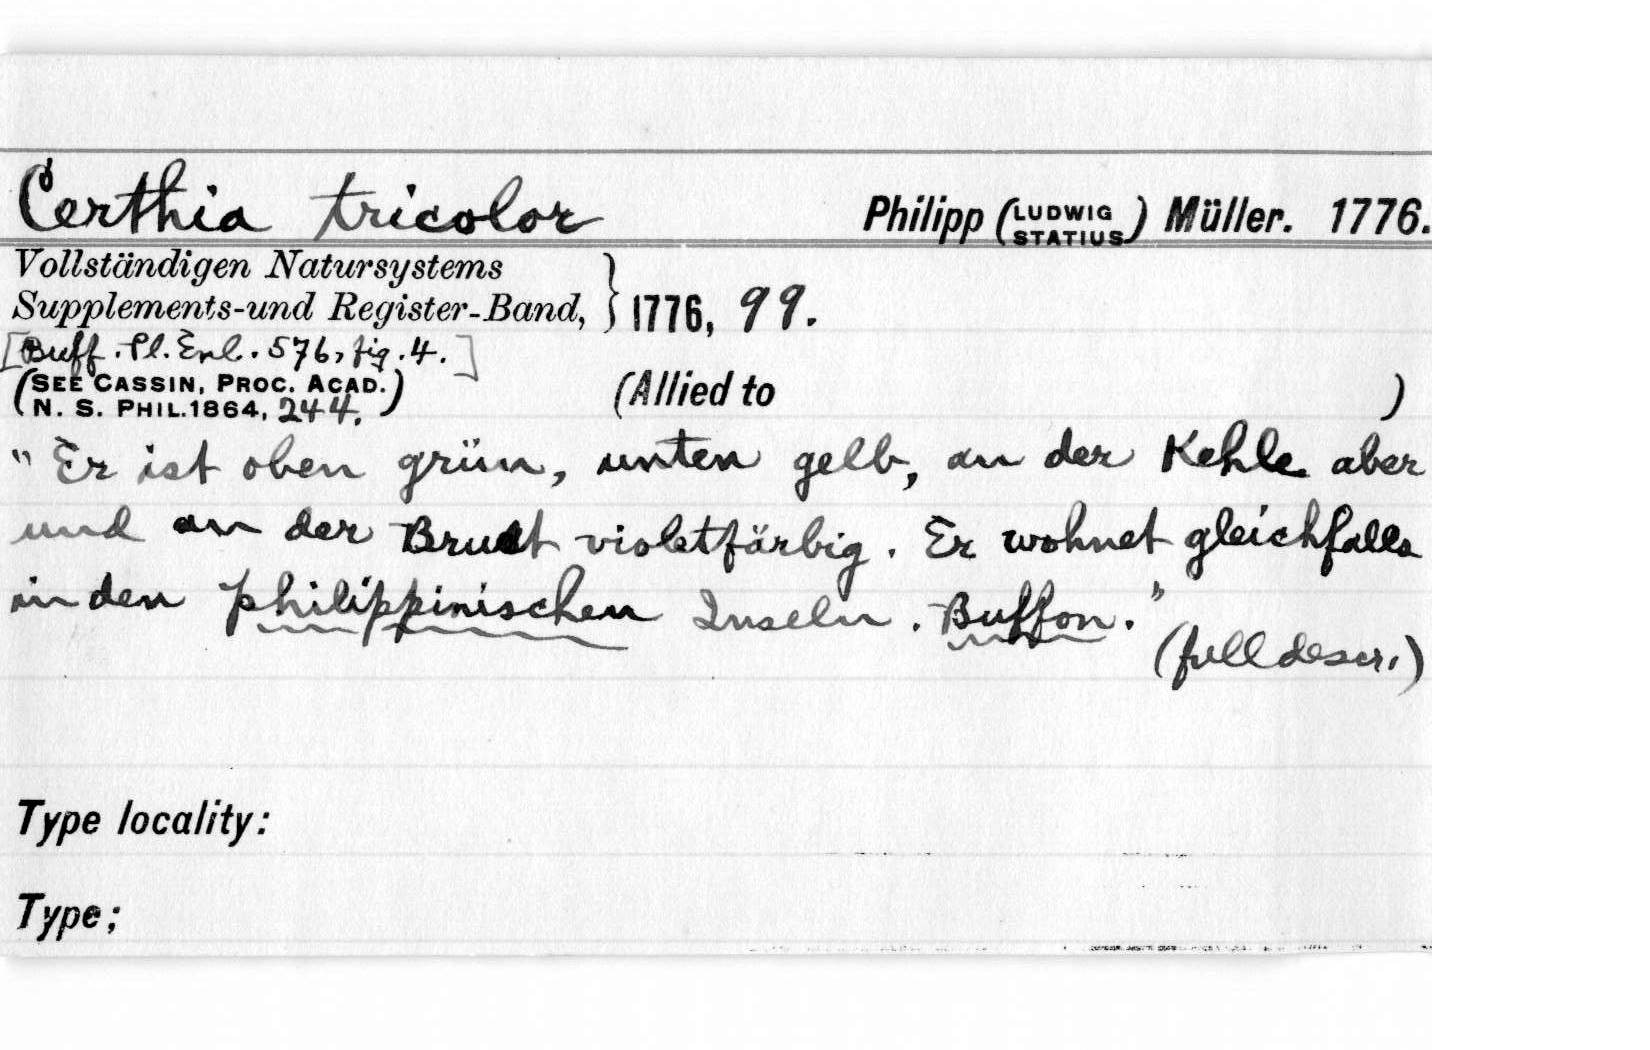 Certhia tricolor Philipp (LUDWIG STATIUS) Müller. 1776.
Vollständigen Natursystems
Supplements-und Register-Band, } 1776, 99.
[Buff. Pl. Enl. 576, fig. 4.]
(SEE CASSIN, PROC. ACAD.
N. S. PHIL. 1864, 244.) (Allied to )
"Er ist oben grün, unten gelb, an der Kehle aber
und an der Brust violetfärbig. Er wohnet gleichfalls
in den philippinischen Inseln. Buffon."
(full descr.)
Type locality:
Type;